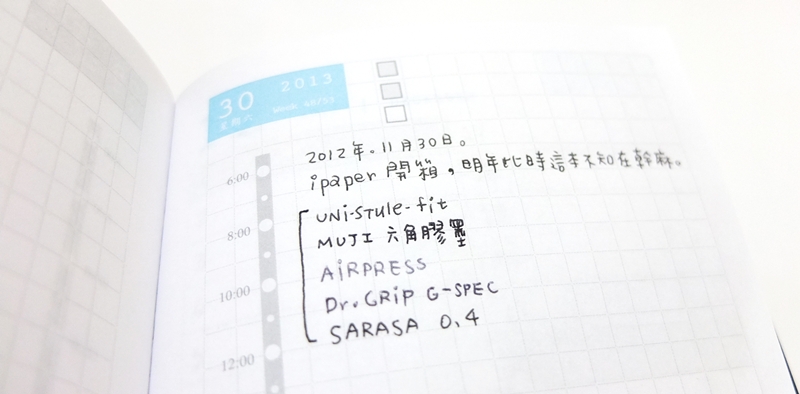 30 2013
星期六 Week 48/53
2012年.11月30日。
6:00
ipaper 開箱，明年此時這本不知在幹麻。
UNi-STyle-fit
8:00
MUJI 六角膠墨
AiRPRESS
10:00
Dr.GRiP G-SPEC
SARASA 0.4
12:00